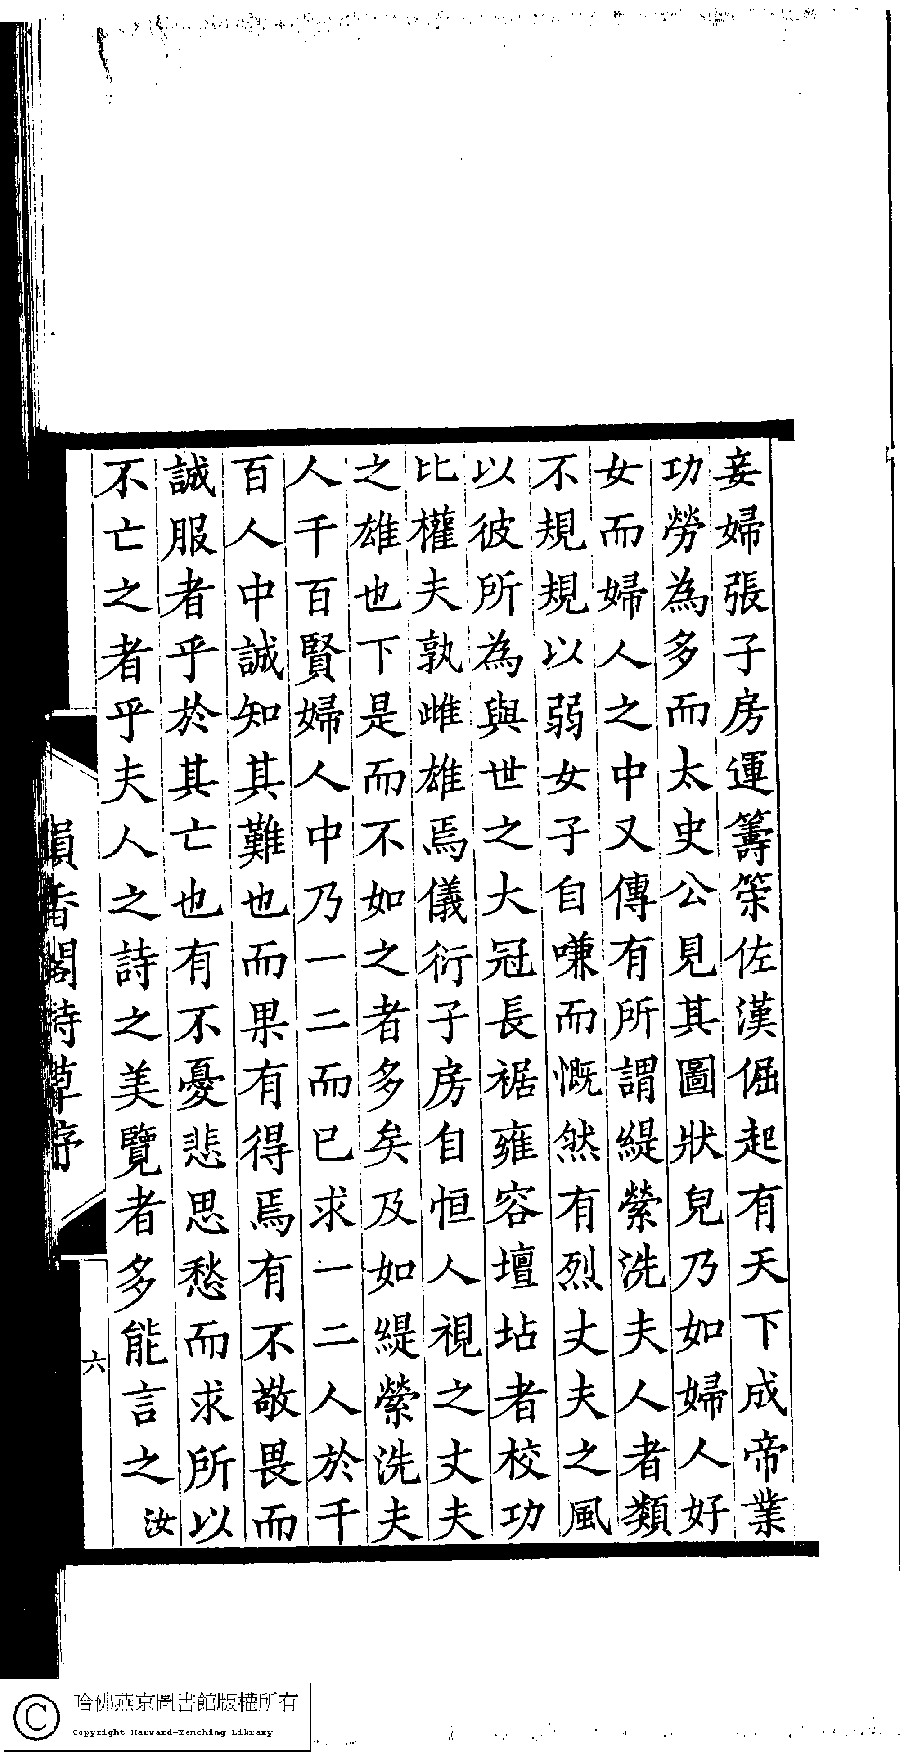 妾婦張子房運籌策佐漢倔起有天下成帝業
功勞為多而太史公見其圖狀皃乃如婦人好
女而婦人之中又傳有所謂緹縈洗夫人者類
不規規以弱女子自嗛而慨然有烈丈夫之風
以彼所為與世之大冠長裾雍容壇坫者校功
比權夫孰雌雄焉儀衍子房自恒人視之丈夫
之雄也下是而不如之者多矣及如緹縈洗夫
人千百賢婦人中乃一二而已求一二人於千
百人中誠知其難也而果有得焉有不敬畏而
誠服者乎於其亡也有不憂悲思愁而求所以
不亡之者乎夫人之詩之美覽者多能言之汝
韻香閣詩草序
六
哈佛燕京圖書館版權所有
Copyright Harvard-Yenching Library